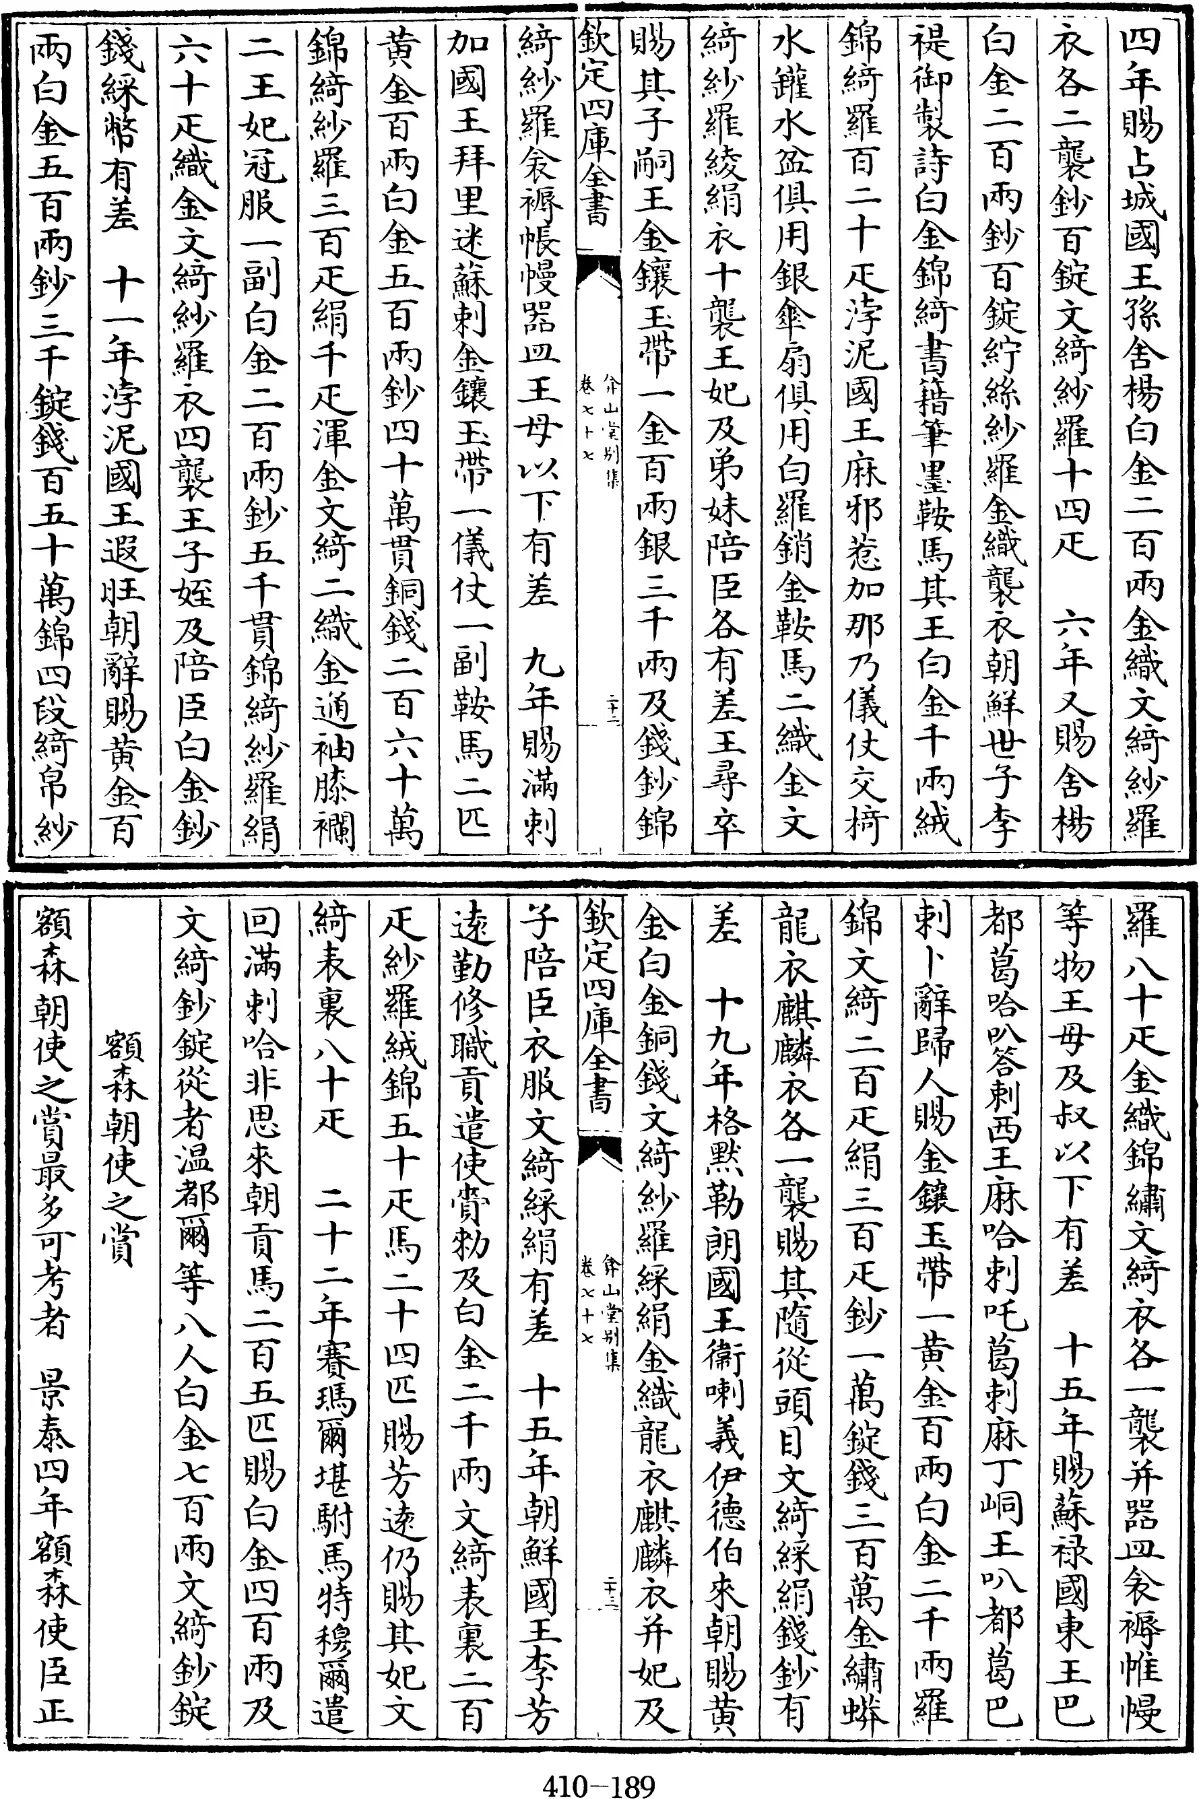 四年賜占城國王孫舍楊白金二百兩金織文綺紗羅
衣各二襲鈔百錠文綺紗羅十四疋　六年又賜舍楊
白金二百兩鈔百錠紵絲紗羅金織襲衣朝鮮世子李
禔御製詩白金錦綺書籍筆墨鞍馬其王白金千兩絨
錦綺羅百二十疋浡泥國王麻邪惹加那乃儀仗交椅
水鑵水盆俱用銀傘扇俱用白羅銷金鞍馬二織金文
綺紗羅綾絹衣十襲王妃及弟妹陪臣各有差王尋卒
賜其子嗣王金鑲玉帶一金百兩銀三千兩及錢鈔錦
欽定四庫全書
弇山堂别集
卷七十七
二十二
綺紗羅衾褥帳幔器皿王母以下有差　九年賜滿剌
加國王拜里迷蘇剌金鑲玉帶一儀仗一副鞍馬二匹
黄金百兩白金五百兩鈔四十萬貫銅錢二百六十萬
錦綺紗羅三百疋絹千疋渾金文綺二織金通袖膝襴
二王妃冠服一副白金二百兩鈔五千貫錦綺紗羅絹
六十疋織金文綺紗羅衣四襲王子姪及陪臣白金鈔
錢綵幣有差　十一年浡泥國王遐旺朝辭賜黄金百
兩白金五百兩鈔三千錠錢百五十萬錦四段綺帛紗
羅八十疋金織錦繡文綺衣各一襲并器皿衾褥帷幔
等物王母及叔以下有差　十五年賜蘇禄國東王巴
都葛哈叭答剌西王麻哈剌吒葛剌麻丁峒王叭都葛巴
剌卜辭歸人賜金鑲玉帶一黄金百兩白金二千兩羅
錦文綺二百疋絹三百疋鈔一萬錠錢三百萬金繡蟒
龍衣麒麟衣各一襲賜其隨從頭目文綺綵絹錢鈔有
差　十九年格默勒朗國王衛喇義伊德伯來朝賜黄
金白金銅錢文綺紗羅綵絹金織龍衣麒麟衣并妃及
欽定四庫全書
弇山堂别集
卷七十七
二十三
子陪臣衣服文綺綵絹有差　十五年朝鮮國王李芳
遠勤修職貢遣使賫勑及白金二千兩文綺表裏二百
疋紗羅絨錦五十疋馬二十四匹賜芳遠仍賜其妃文
綺表裏八十疋　二十二年賽瑪爾堪駙馬特穆爾遣
回滿剌哈非思來朝貢馬二百五匹賜白金四百兩及
文綺鈔錠從者温都爾等八人白金七百兩文綺鈔錠
額森朝使之賞
額森朝使之賞最多可考者　景泰四年額森使臣正
410-189